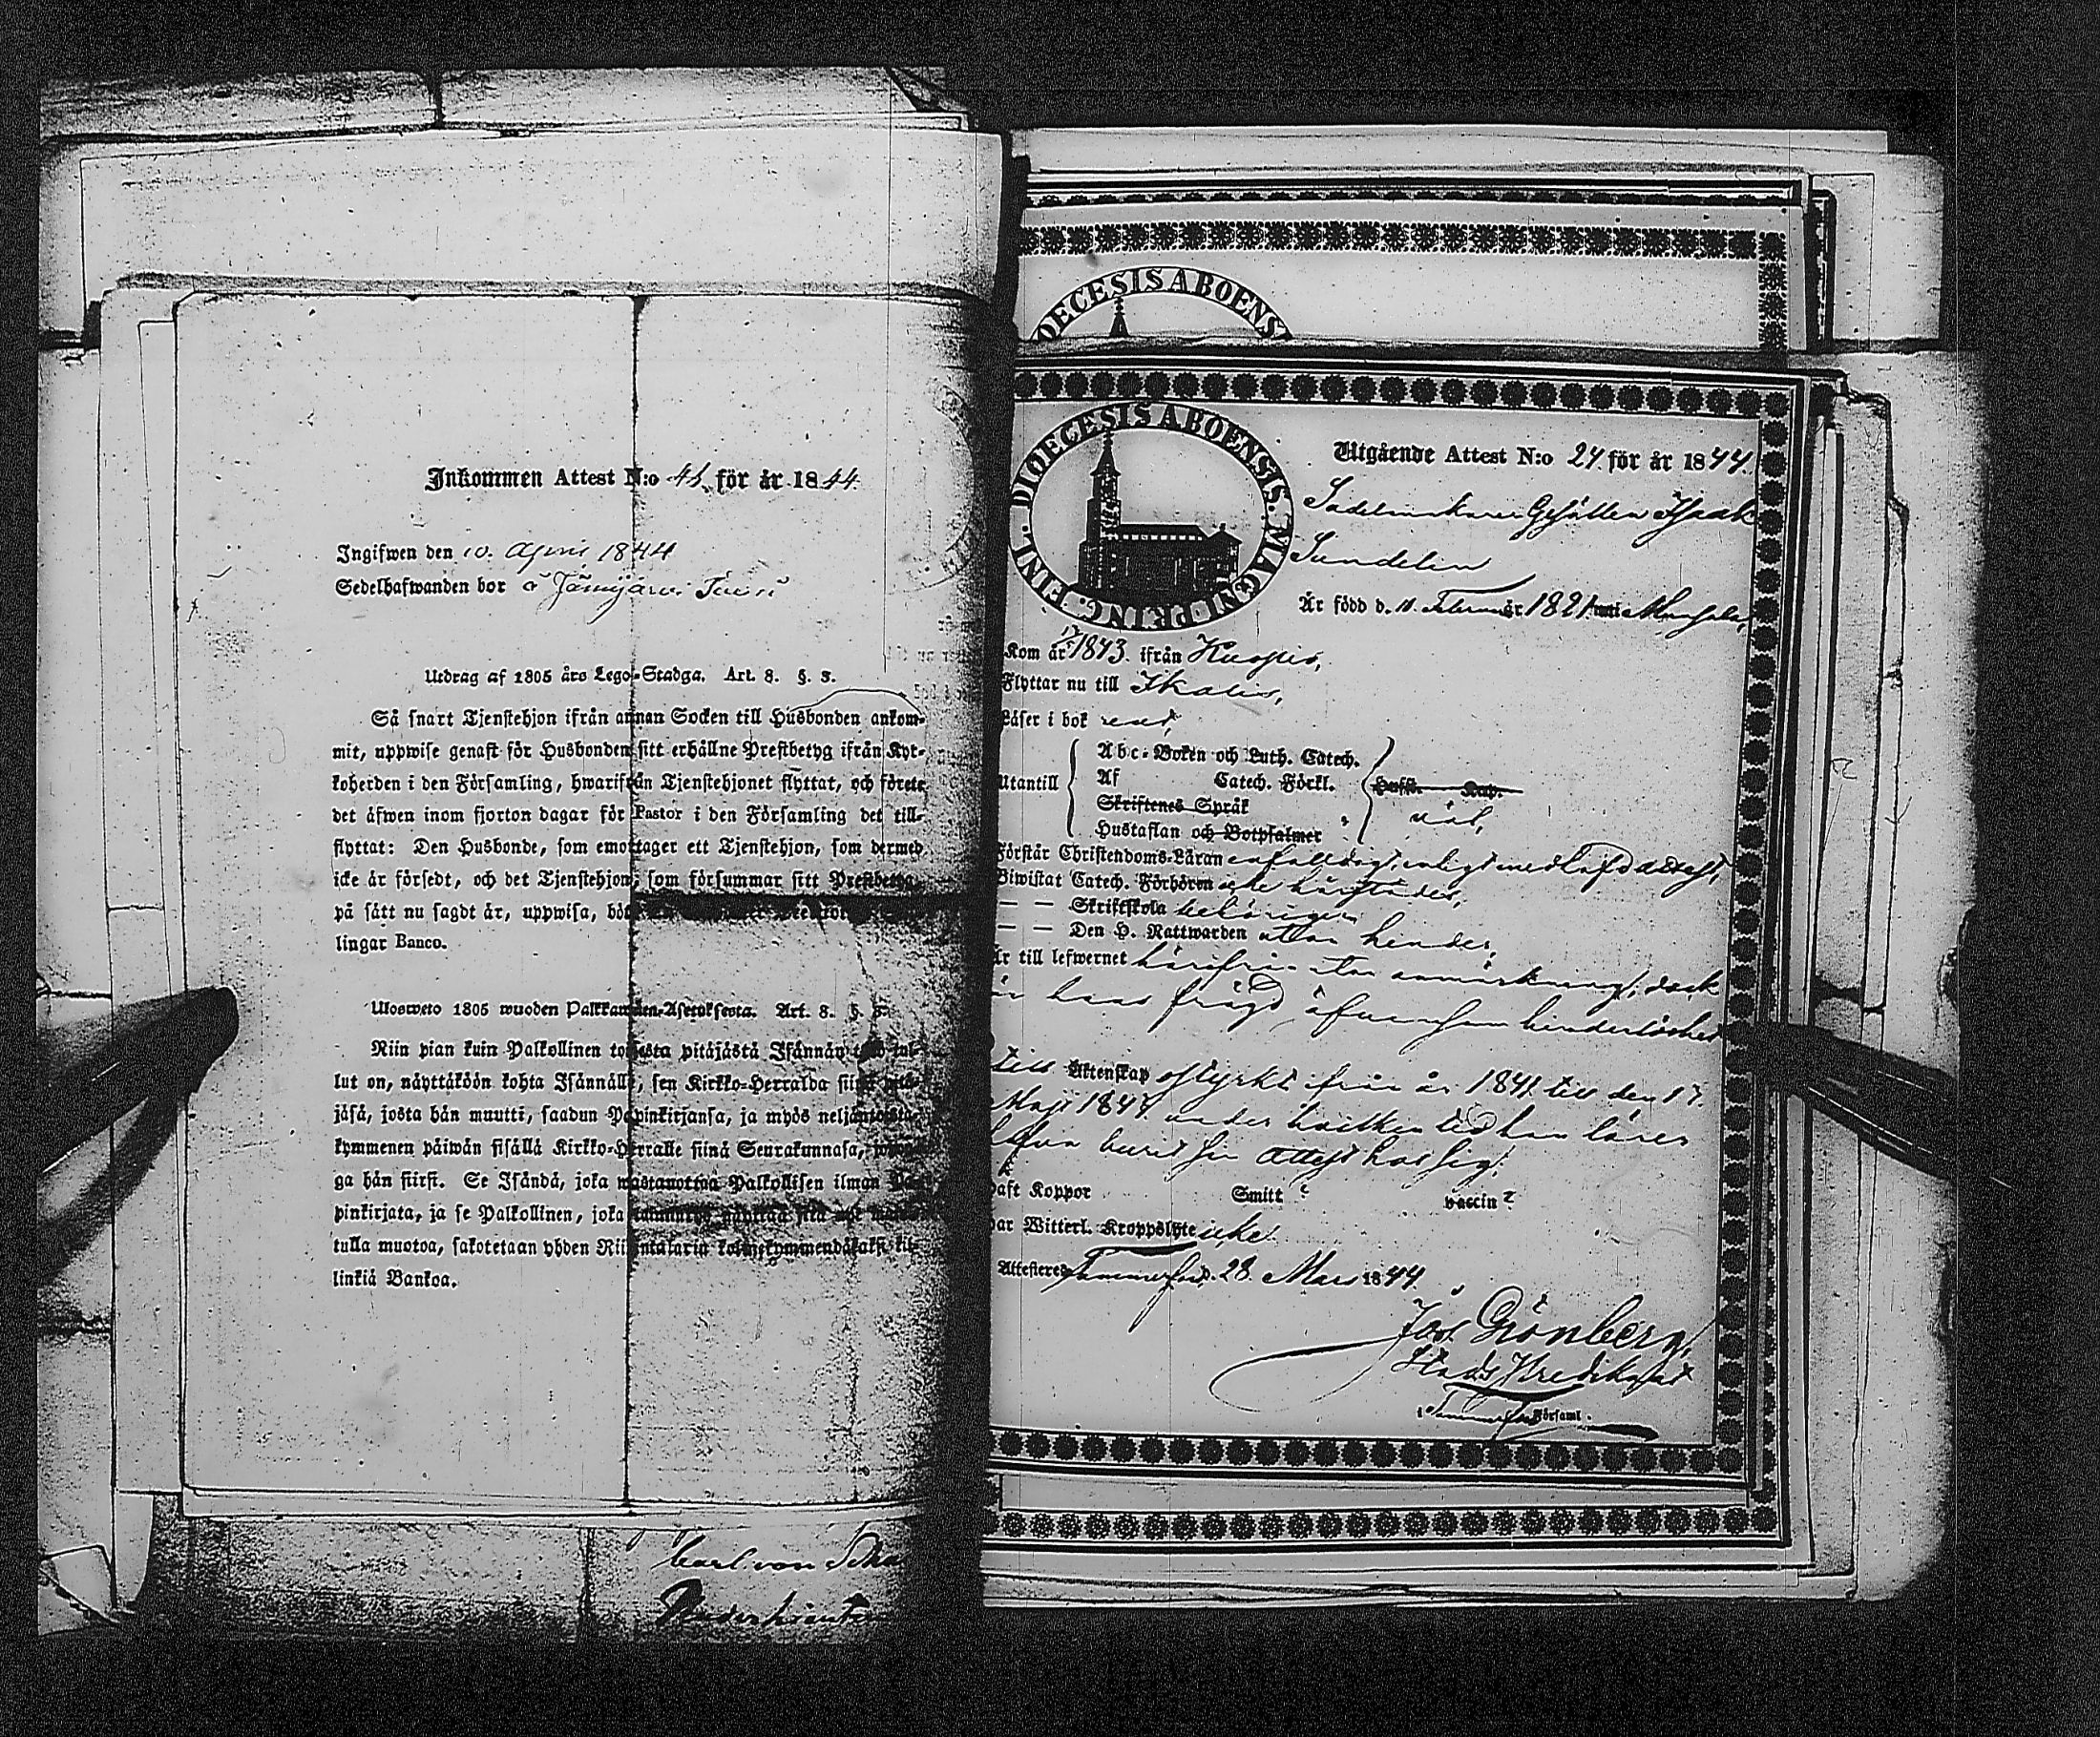 Inkommen Attest N:o för år 1844.
Ingifwen den 10. April 1844
Sedelhafwanden bor å Jämijärvi
Utdrag af 1805 års Lego-Stadga. Art. 8. §. 3.
Så snart Tjenstehjon ifrån annan Socken till Husbonden ankom-
mit, uppwise genast för Husbonden sitt erhållne Prestbetyg ifrån Kyr-
koherden i den Församling, hwarifrån Tjenstehjonet flyttat, och förete
det äfwen inom fjorton dagar för Pastor i den Församling det till-
flyttat: Den Husbonde, som emottager ett Tjenstehjon, som dermed
icke är försedt, och det Tjenstehjon, som försummar sitt Prestbetyg,
på sätt nu sagdt är, uppwisa,
lingar Banco.
Ulosweto 1805 wuoden Palkkawäen-Asetuksesta. Art. 8. §. 3.
Niin pian kuin Palkollinen toisesta pitäjästä Isännän tul-
lut on, näyttäköön kohta Isännälle, sen Kirkko-Herralda siinä pitä-
jäsä, josta hän muutti, saadun Papinkirjansa, ja myös neljäntoista-
kymmenen päiwän sisällä Kirkko-Herralle siinä Seurakunnasa,
ga hän siirsi. Se Isändä, joka wastanottaa Palkollisen ilman Pa-
pinkirjata, ja se Palkollinen, joka
tulla muotoa, sakotetaan yhden Riikintalarin kolmekymmendäkaksi kil-
linkiä Bankoa.
Carl von
DIOECESIS ABOENS
FINL. DIOECESIS ABOENSIS. MAGNI PRINC.
Utgående Attest N:o 24. för år 1844.
Sadelmakare Gesällen Isaak
Sundelin
Är född d. 11. Februari år 1821 i
Kom år 1843. ifrån Kuopio,
Flyttar nu till Ikalis,
Läser i bok rent,
Utantill
Abc-Boken och Luth. Catech.
Af Catech. Förkl.
Skriftenes Språk
Hustaflan och Botpsalmer
Hufst. Kap.
väl,
Förstår Christendoms-Läran enfaldigt, enligt medhafd attest,
Biwistat Catech. Förhören icke härstädes,
— — Skriftskola behörigen
— — Den H. Nattwarden utan hinder,
Är till lefwernet härifrån utan anmärkning; dock
är hans frägd, äfvensom hinderlöshet
till Äktenskap ostyrkt från år 1841 till den 17.
Maji 1843 under hvilken tid han lärer
burit sin Attest hos sig.
Haft Koppor Smitt ? vaccin ?
Har Witterl. Kroppslyte icke.
Attesteres Tammerfors d. 28. Mars 1844.
Jos. Grönberg,
Stads Predikant
i Tammerfors Församl.